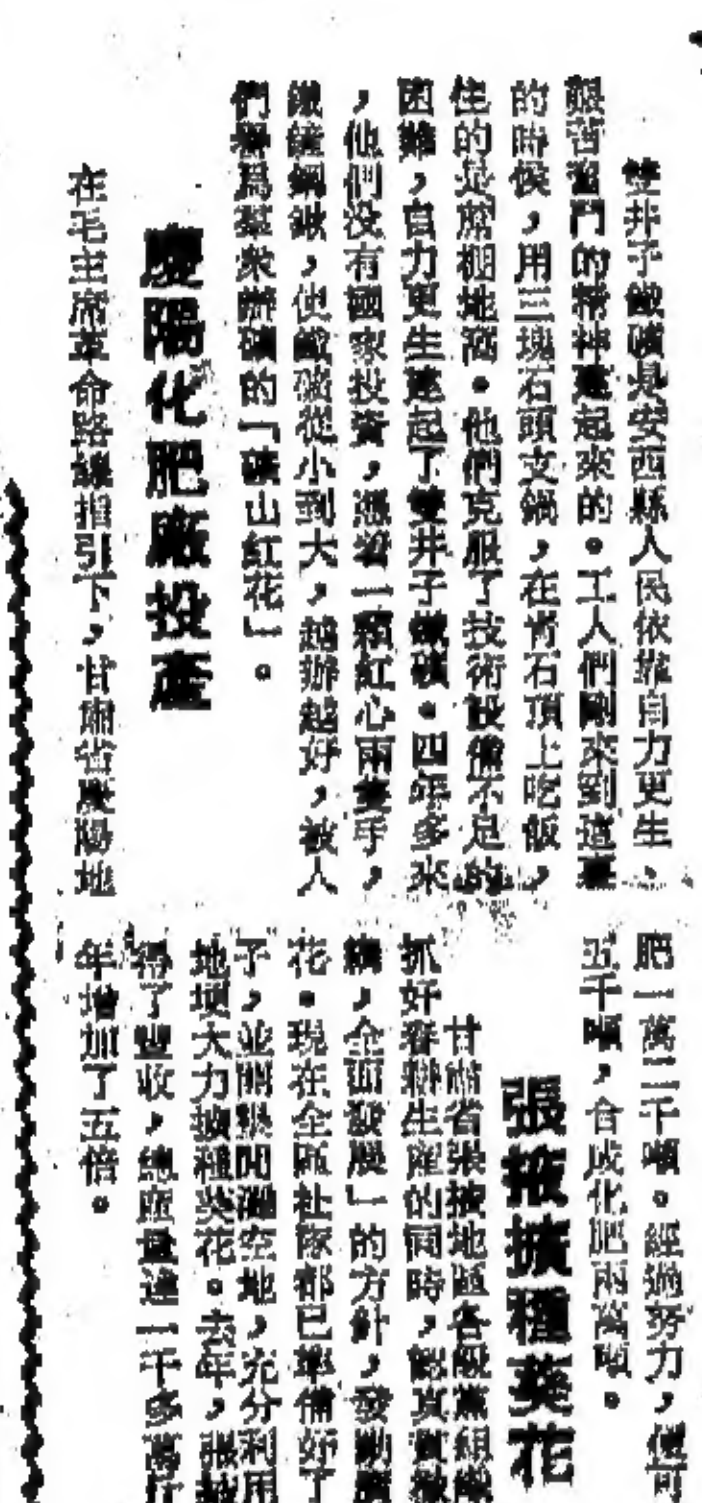 雙井子鐵礦是安西縣人民依靠自力更生、
艱苦奮鬥的精神建起來的。工人們剛來到這裏
的時候，用三塊石頭支鍋，在青石頂上吃飯，
住的是席棚地窩。他們克服了技術設備不足的
困難，自力更生建起了雙井子鐵礦。四年多來
，他們没有國家投資，憑着一顆紅心兩隻手，
鐵錘鋼鍬，使鐵礦從小到大，越辦越好，被人
們譽爲羣衆辦礦的「礦山紅花」。
慶陽化肥廠投產
在毛主席革命路線指引下，甘肅省慶陽地
肥一萬二千噸。經過努力，還可
五千噸，合成化肥兩萬噸。
張掖擴種葵花
甘肅省張掖地區各級黨組織
抓好春耕生産的同時，認真貫徹
綱，全面發展」的方針，發動廣
花。現在全區社隊都已準備好了
子，並開墾閒灘空地，充分利用
地埂大力擴種葵花。去年，張掖
得了豐收，總産量達一千多萬斤
年增加了五倍。